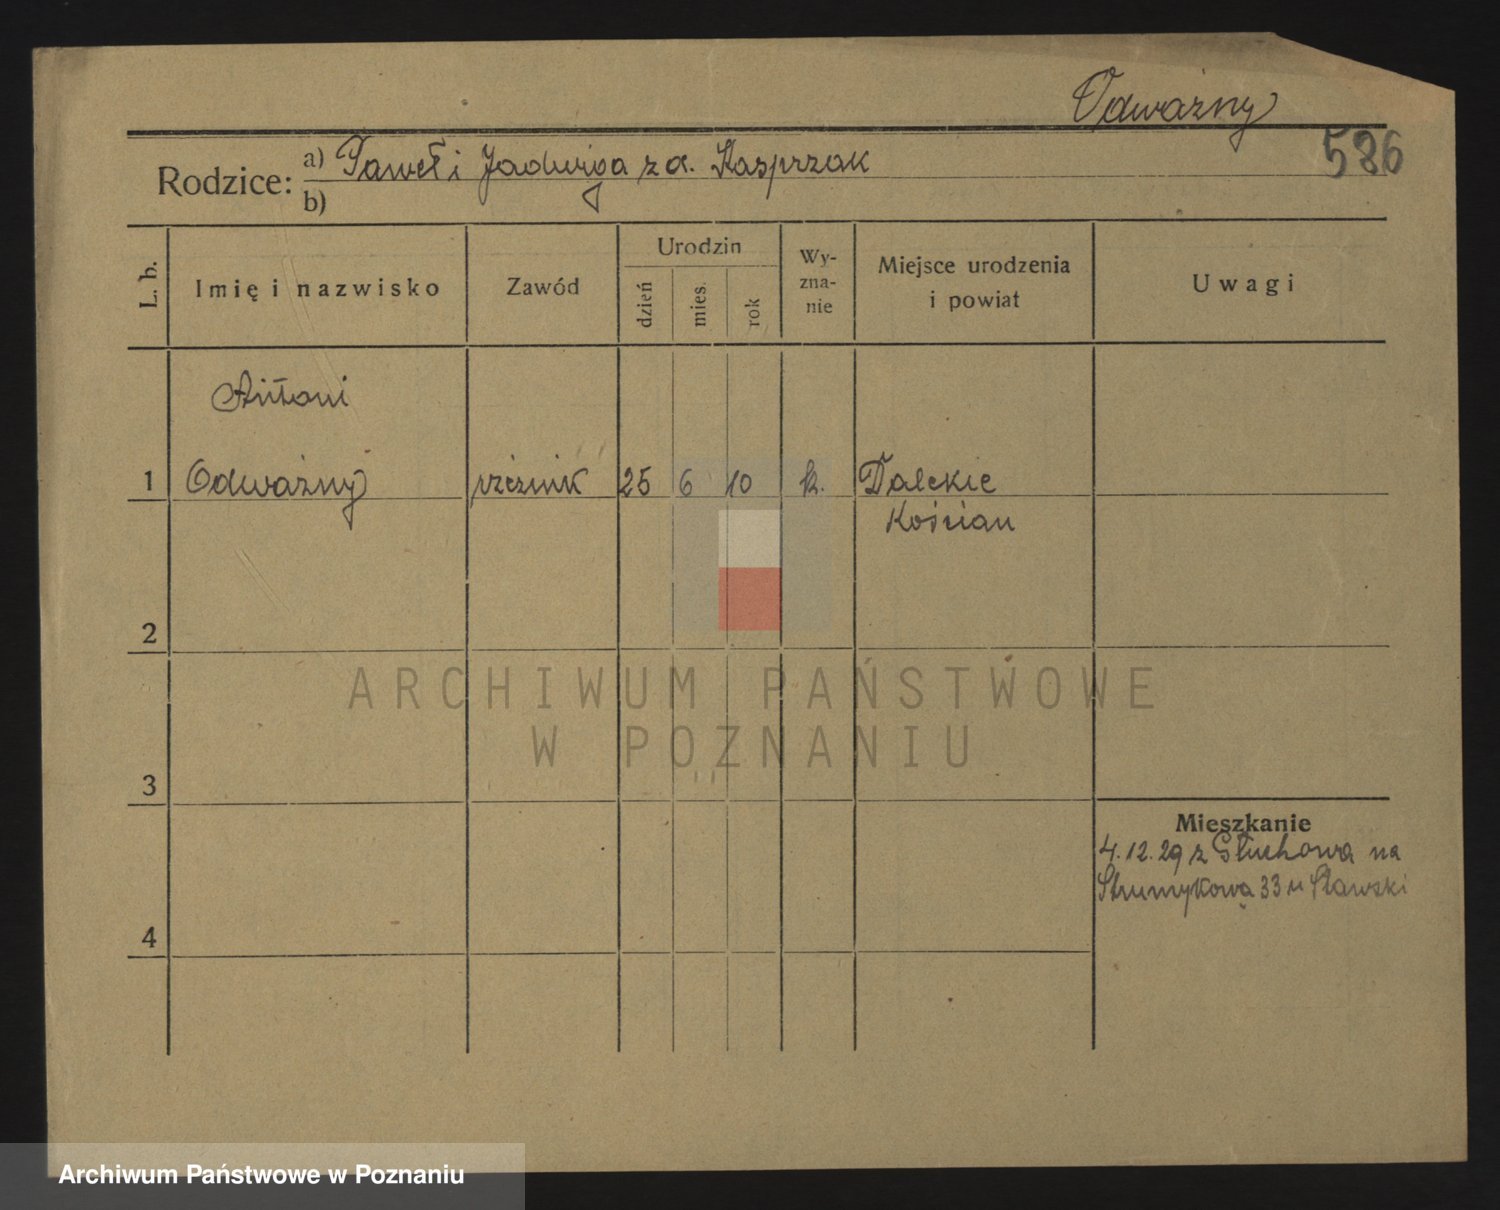 Odważny
586
Rodzice:
a) Paweł i Jadwiga z d. Kasprzak
b)
L. b.
Imię i nazwisko
Zawód
Urodzin
dzień
mies.
rok
Wy-
zna-
nie
Miejsce urodzenia
i powiat
Uwagi
Antoni
1 Odważny rzeźnik 25 6 10 k. Dalekie
Kościan
2
ARCHIWUM PAŃSTWOWE
W POZNANIU
3
Mieszkanie
4.12.29 z Głuchowa na
Strumykową 33 u Sławski
4
Archiwum Państwowe w Poznaniu